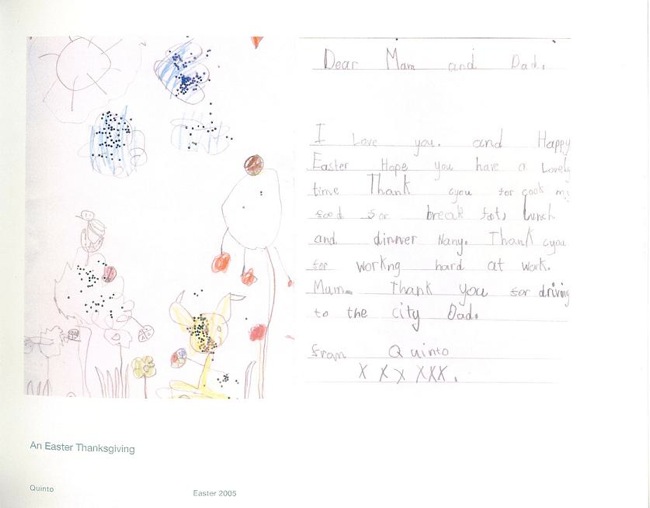 Dear Mam and Dad.
I Love you. and Happy
Easter Hope you have a Lovely
time Thank you for cook my
food for break fast, lunch
and dinner Nany. Thank you
for workng hard at work.
Mum. Thank you for driving
to the city Dad.
from Quinto
X X X XXX.
An Easter Thanksgiving
Quinto Easter 2005